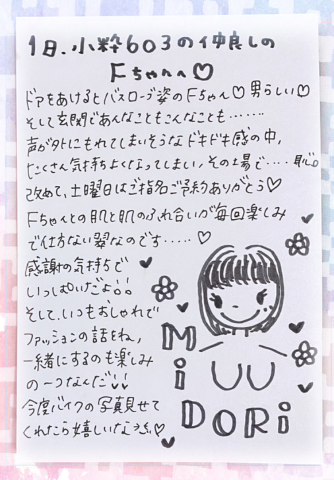 1日、小粋603の仲良しの
Fちゃんへ♡
ドアをあけるとバスローブ姿のFちゃん♡男らしい♡
そして玄関であんなこともこんなことも‥‥‥‥
声が外にもれてしまいそうなドキドキ感の中、
たくさん気持ちよくなってしまい、その場で‥‥恥♡
改めて、土曜日はご指名ご予約ありがとう♡
Fちゃんとの肌と肌のふれ合いが毎回楽しみ
で仕方ない翠なのです‥‥‥♡
感謝の気持ちで
いっぱいだよ!!
そして、いつもおしゃれで
ファッションの話をね、
一緒にするのも楽しみ
の一つなんだ!!
今度バイクの写真見せて
くれたら嬉しいなぁ
MiDORi